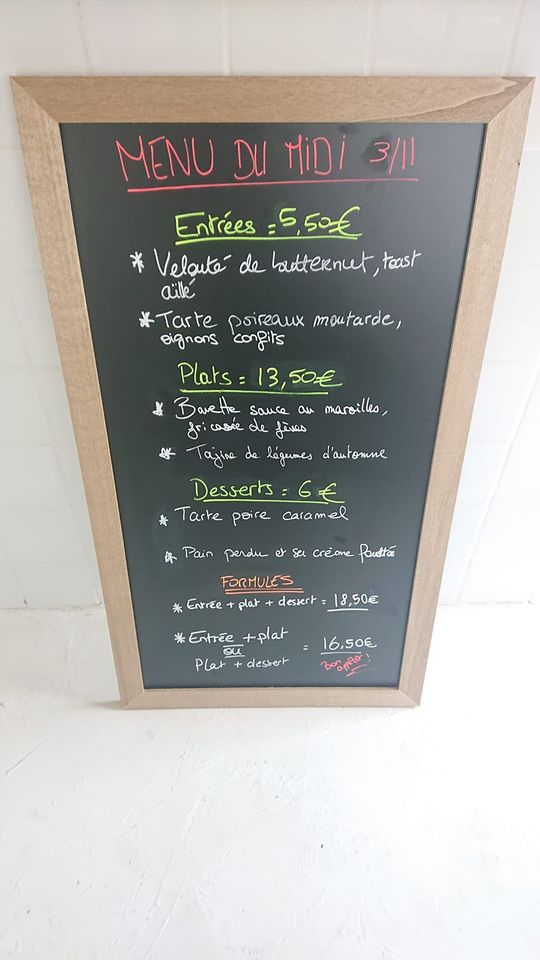 MENU DU MIDI 3/11
Entrées = 5,50€
* Velouté de butternut, toast
aillé
* Tarte poireaux moutarde,
oignons confits
Plats = 13,50€
* Bavette sauce au maroilles,
fricassée de fèves
* Tajine de légumes d'automne
Desserts = 6€
* Tarte poire caramel
* Pain perdu et sa crème fouettée
FORMULES
* Entrée + plat + dessert = 18,50€
* Entrée + plat
ou
Plat + dessert
= 16,50€
Bon
appétit!